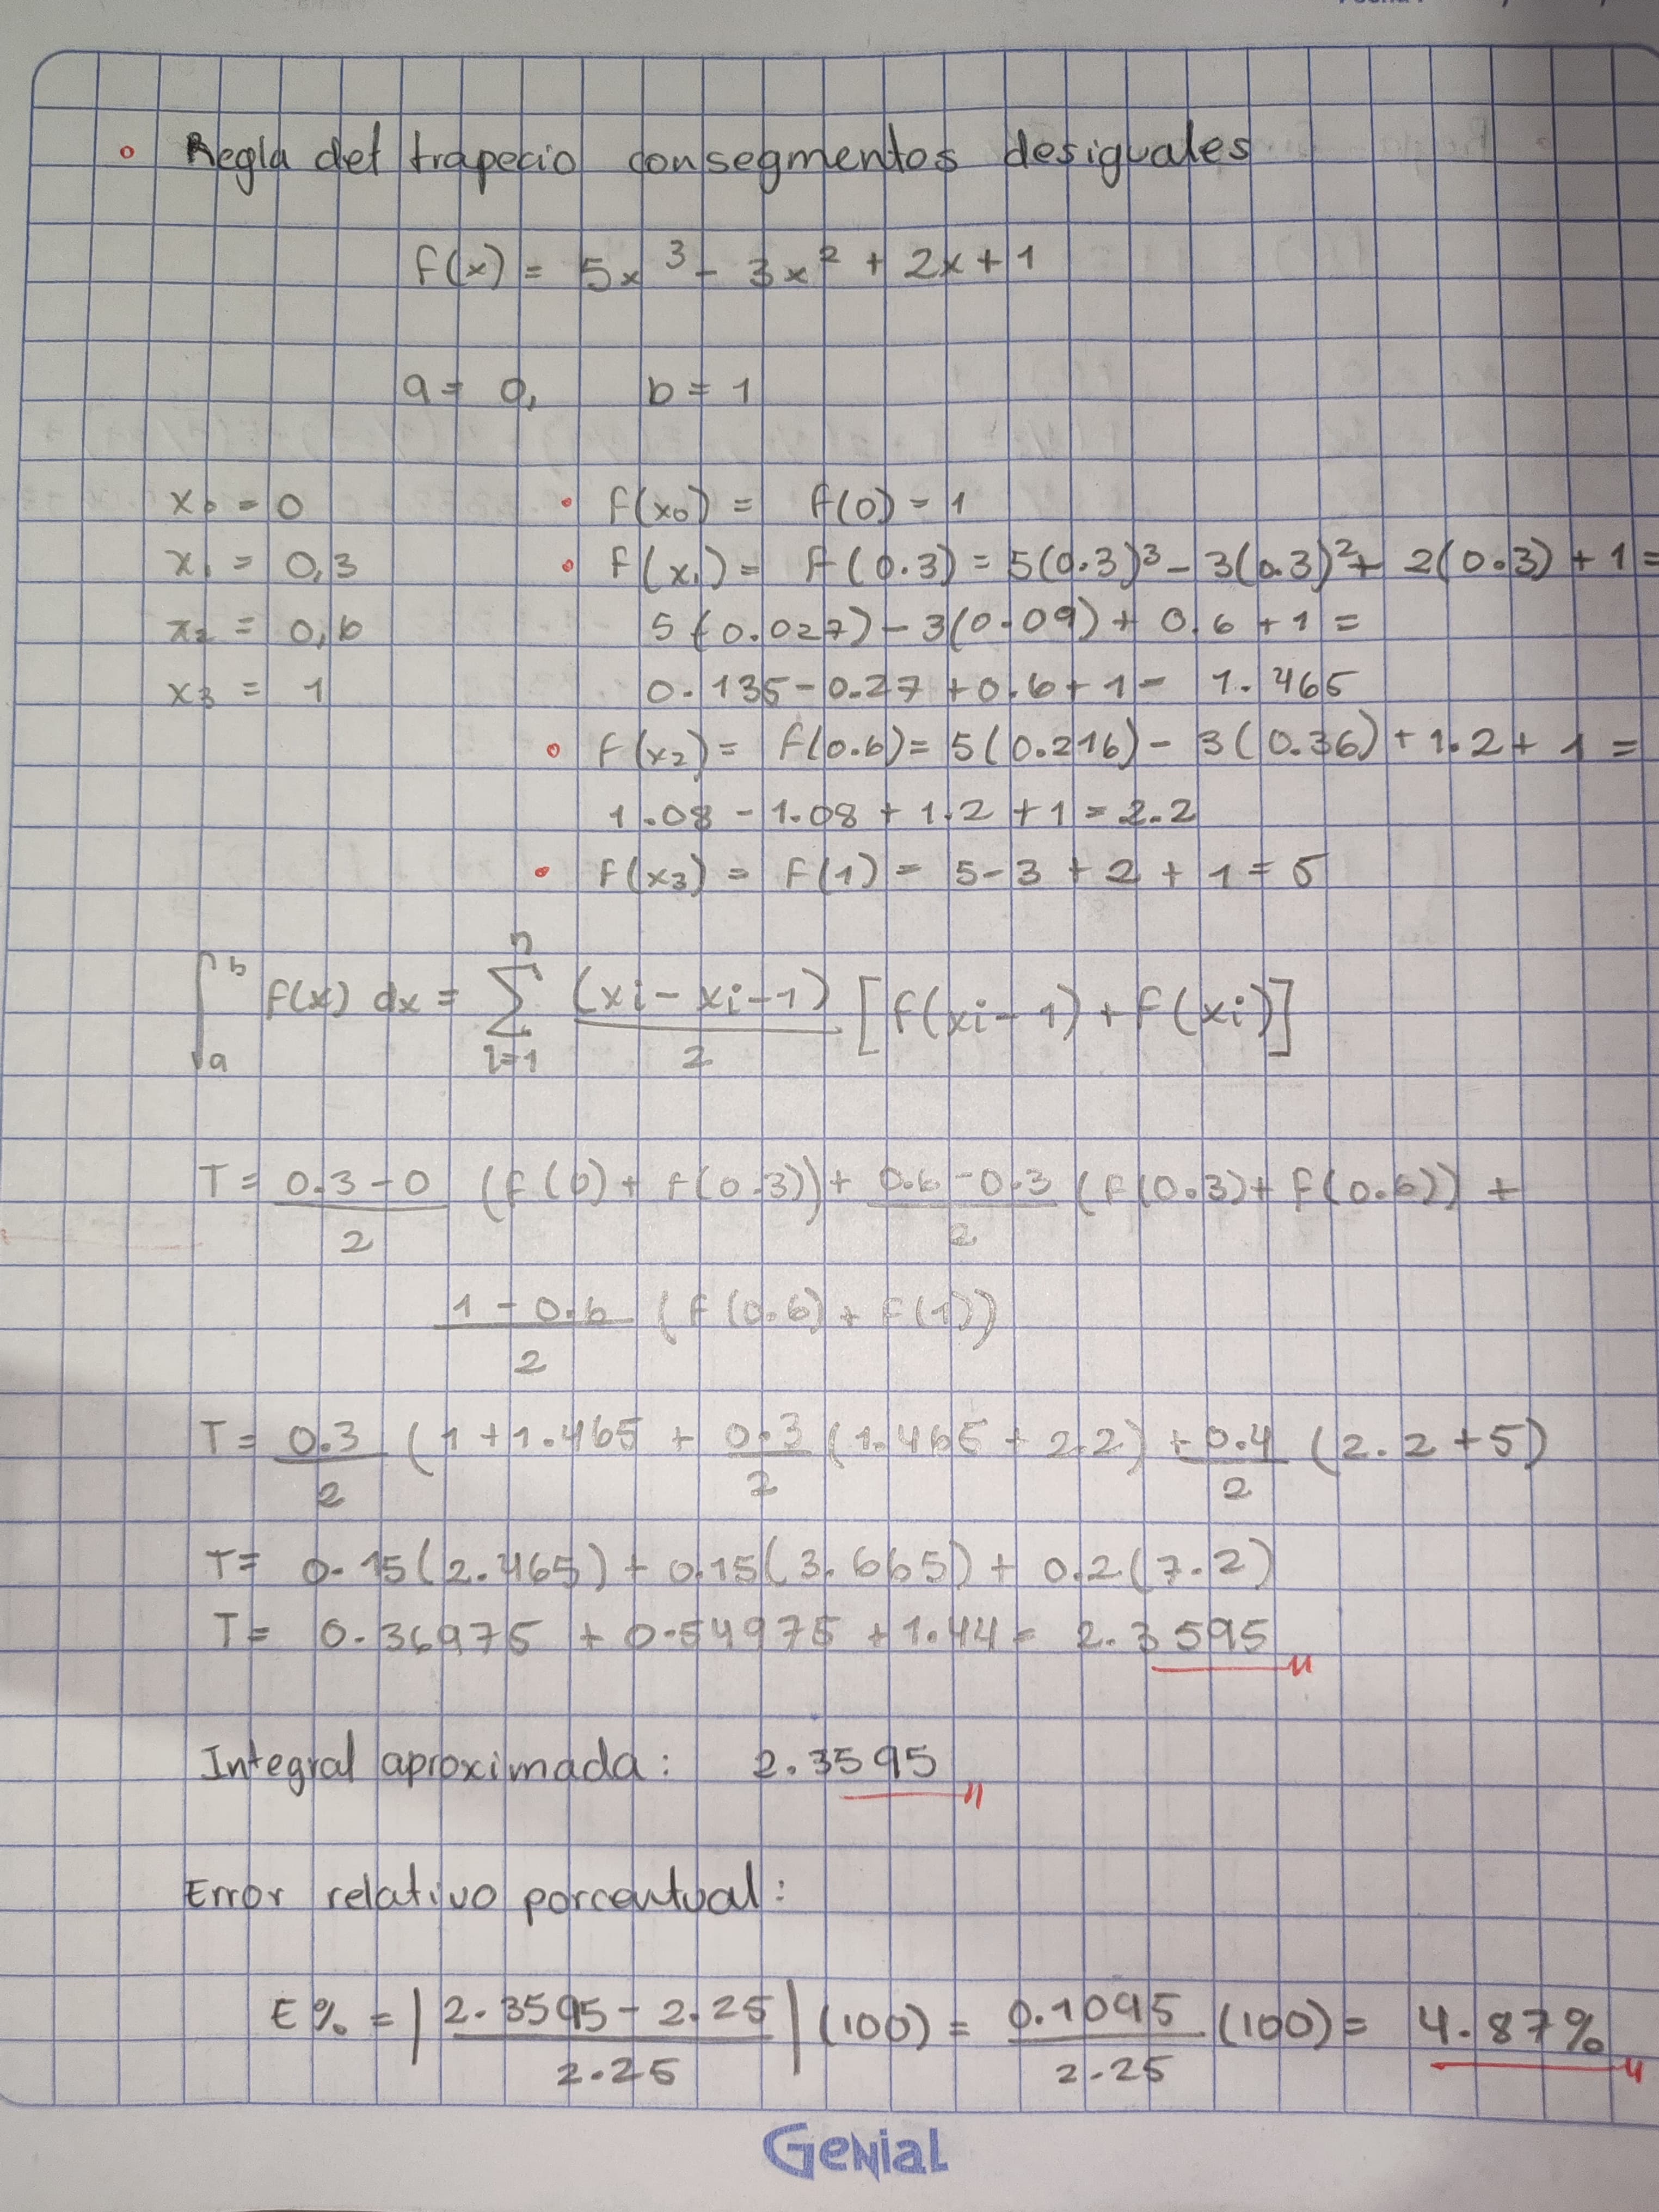 • Regla del trapecio con segmentos desiguales
f(x) = 5x³ - 3x² + 2x + 1
a = 0, b = 1
x₀ = 0 • f(x₀) = f(0) = 1
x₁ = 0,3 • f(x₁) = f(0.3) = 5(0.3)³ - 3(0.3)² + 2(0.3) + 1 =
x₂ = 0,6 5(0.027) - 3(0.09) + 0.6 + 1 =
x₃ = 1 0.135 - 0.27 + 0.6 + 1 = 1.465
• f(x₂) = f(0.6) = 5(0.216) - 3(0.36) + 1.2 + 1 =
1.08 - 1.08 + 1.2 + 1 = 2.2
• f(x₃) = f(1) = 5 - 3 + 2 + 1 = 5
∫ₐᵇ f(x) dx = Σⁿᵢ₌₁ (xi - xi-1)/2 [f(xi-1) + f(xi)]
T = (0.3 - 0)/2 (f(0) + f(0.3)) + (0.6 - 0.3)/2 (f(0.3) + f(0.6)) +
(1 - 0.6)/2 (f(0.6) + f(1))
T = 0.3/2 (1 + 1.465 + 0.3/2 (1.465 + 2.2) + 0.4/2 (2.2 + 5)
T = 0.15(2.465) + 0.15(3.665) + 0.2(7.2)
T = 0.36975 + 0.54975 + 1.44 = 2.3595
Integral aproximada: 2.3595
Error relativo porcentual:
E% = |(2.3595 - 2.25)/2.25| (100) = 0.1095/2.25 (100) = 4.87%
GENIAL